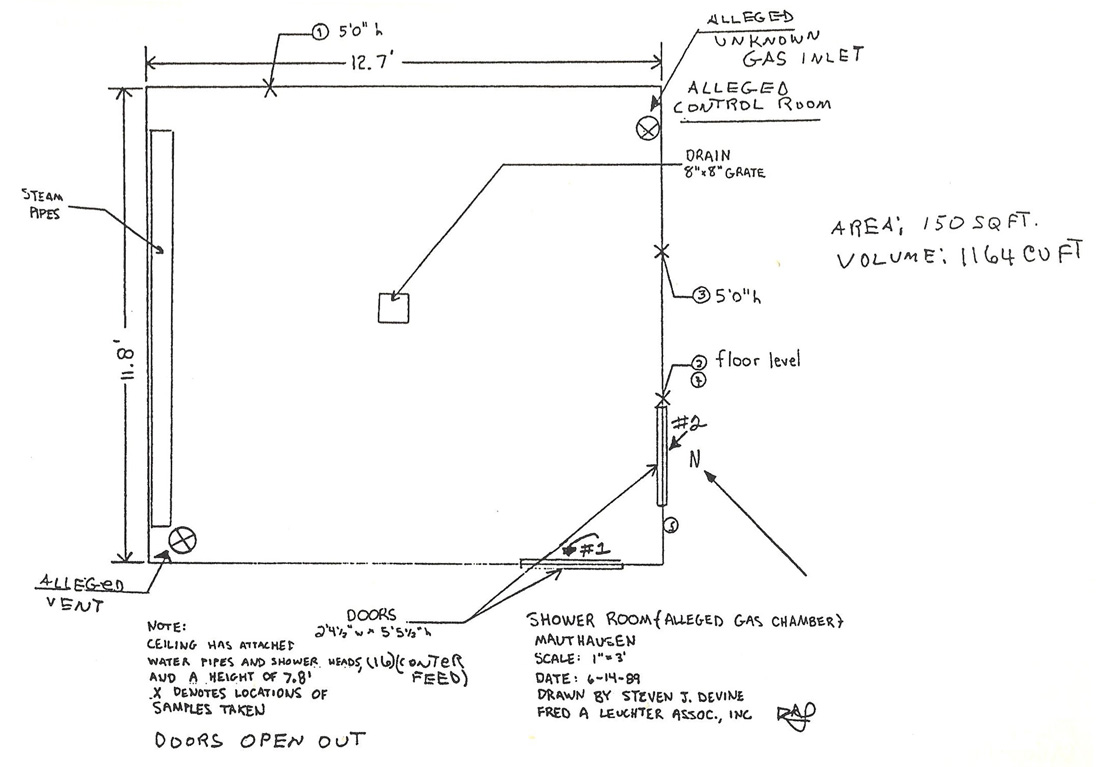 ① 5'0" h
12.7'
ALLEGED
UNKNOWN
GAS INLET
ALLEGED
CONTROL ROOM
DRAIN
8"x8" GRATE
STEAM
PIPES
AREA: 150 SQ FT.
VOLUME: 1164 CU FT
③ 5'0" h
11.8'
② floor level
#2
N
#1
ALLEGED
VENT
DOORS
2'4½" w x 5'5½" h
NOTE:
CEILING HAS ATTACHED
WATER PIPES AND SHOWER HEADS, (16) (CONTER
FEED)
AND A HEIGHT OF 7.8'
X DENOTES LOCATIONS OF
SAMPLES TAKEN
DOORS OPEN OUT
SHOWER ROOM (ALLEGED GAS CHAMBER)
MAUTHAUSEN
SCALE: 1"=3'
DATE: 6-14-89
DRAWN BY STEVEN J. DEVINE
FRED A LEUCHTER ASSOC., INC